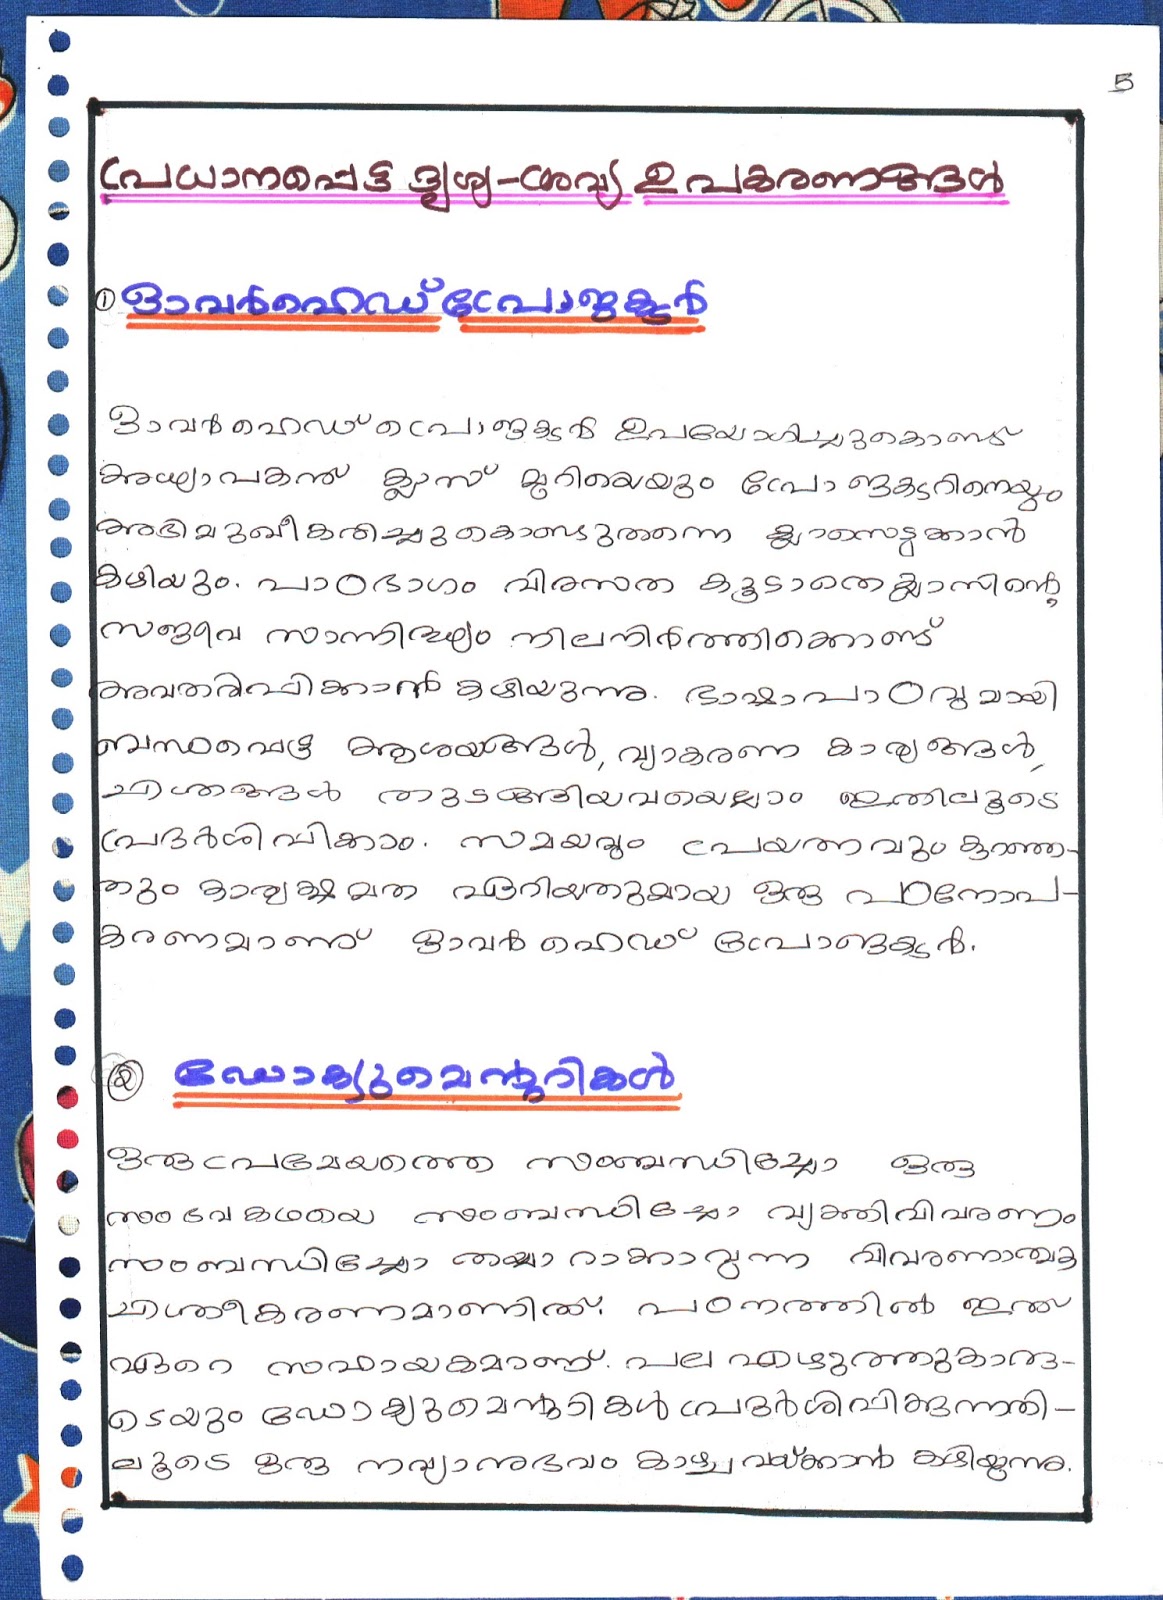 5
പ്രധാനപ്പെട്ട ദൃശ്യ-ശ്രവ്യ ഉപകരണങ്ങൾ
① ഓവർഹെഡ് പ്രോജക്ടർ
ഓവർഹെഡ് പ്രോജക്ടർ ഉപയോഗിച്ചുകൊണ്ട്
അധ്യാപകന് ക്ലാസ് മുറിയെയും പ്രോജക്ടറിനെയും
അഭിമുഖീകരിച്ചുകൊണ്ടുതന്നെ ക്ലാസെടുക്കാൻ
കഴിയും. പാഠഭാഗം വിരസത കൂടാതെ ക്ലാസിന്റെ
സജീവ സാന്നിദ്ധ്യം നിലനിർത്തിക്കൊണ്ട്
അവതരിപ്പിക്കാൻ കഴിയുന്നു. ഭാഷാപാഠവുമായി
ബന്ധപ്പെട്ട ആശയങ്ങൾ, വ്യാകരണ കാര്യങ്ങൾ,
ചിത്രങ്ങൾ തുടങ്ങിയവയെല്ലാം ഇതിലൂടെ
പ്രദർശിപ്പിക്കാം. സമയവും പ്രയത്നവും കുറഞ്ഞ-
തും കാര്യക്ഷമത ഏറിയതുമായ ഒരു പഠനോപ-
കരണമാണ് ഓവർ ഹെഡ് പ്രോജക്ടർ.
② ഡോക്യുമെന്ററികൾ
ഒരു പ്രമേയത്തെ സംബന്ധിച്ചോ ഒരു
സംഭവകഥയെ സംബന്ധിച്ചോ വ്യക്തിവിവരണം
സംബന്ധിച്ചോ തയ്യാറാക്കാവുന്ന വിവരണാത്മക
ചിത്രീകരണമാണിത്. പഠനത്തിൽ ഇത്
ഏറെ സഹായകമാണ്. പല എഴുത്തുകാരു-
ടെയും ഡോക്യുമെന്ററികൾ പ്രദർശിപ്പിക്കുന്നതി-
ലൂടെ ഒരു നവ്യാനുഭവം കാഴ്ച വയ്ക്കാൻ കഴിയുന്നു.